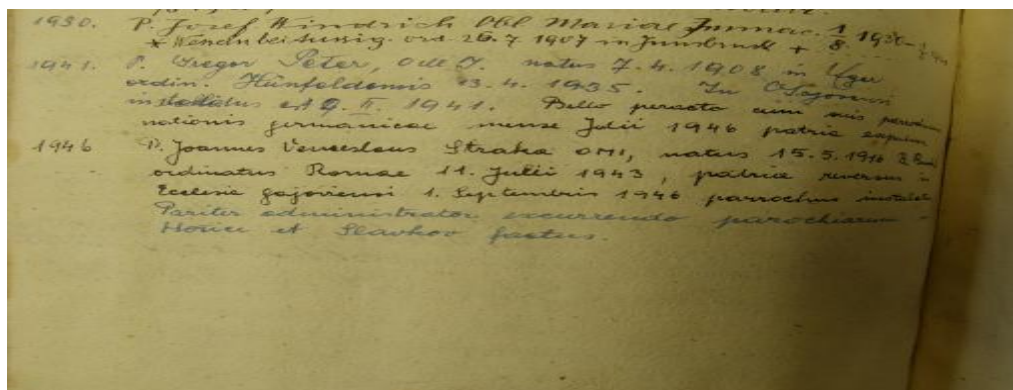 1930. P. Josef Windrich Obl. Mariae Immac. 1/8 1930 -
* Wendn bei Aussig. ord 26.7 1907 in Innsbruck +
1941. P. Gregor Peter, O.M.J. natus 7.4.1908 in Eger
ordin. Hünfeldensis 13.4.1935. In Ecclesia Gojoviensi
installatus est 9. II. 1941. Bello peracto cum suis parochianis
nationis germanicae mense Julii 1946 patria expulsus
1946 P. Joannes Venceslaus Straka OMI, natus 15.5.1916
ordinatus Romae 11. Julii 1943, patriae reversus in
Ecclesia gojoviensi 1. Septembris 1946 parrochus instalat.
Pariter administrator excurrendo parochiarum -
Hořice et Slavkov factus.